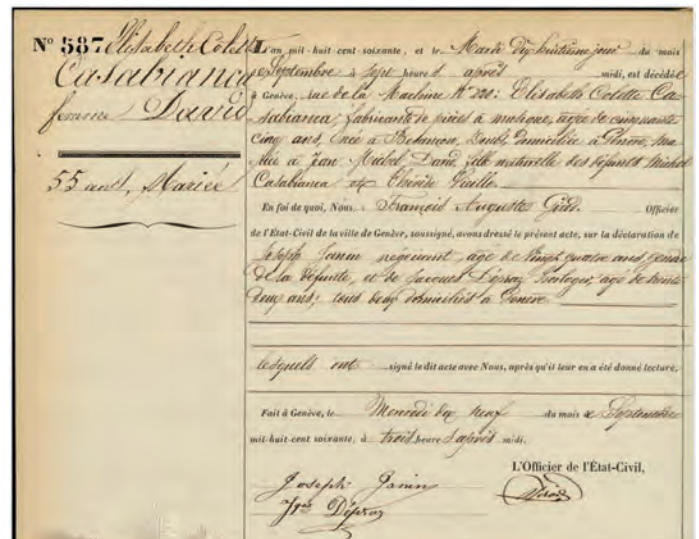 Nº 587 Elisabeth Colette
Casabianca
femme David
55 ans, Mariée
L'an mil-huit cent-soixante, et le Mardi dix huitième jour du mois
de Septembre à sept heures après midi, est décédée
à Genève, rue de la Machine Nº 220: Elisabeth Colette Ca-
sabianca, fabricante de pièces à musique, agée de cinquante
cinq ans, née à Besançon, Doubs, domiciliée à Genève, ma-
riée à Jean Michel David, fille naturelle des défunts Michel
Casabianca et Thérèse
En foi de quoi, Nous François Auguste Girod Officier
de l'Etat-Civil de la ville de Genève, soussigné, avons dressé le présent acte, sur la déclaration de
Joseph Janin négociant, agé de vingt quatre ans, gendre
de la défunte, et de Jacques Dépraz horloger, agé de trente
deux ans; tous deux domiciliés à Genève.
lesquels ont signé le dit acte avec Nous, après qu'il leur en a été donné lecture.
Fait à Genève, le Mercredi dix neuf du mois de Septembre
mil-huit-cent soixante, à trois heures après midi.
L'Officier de l'État-Civil,
Joseph Janin
Jques Dépraz
Girod